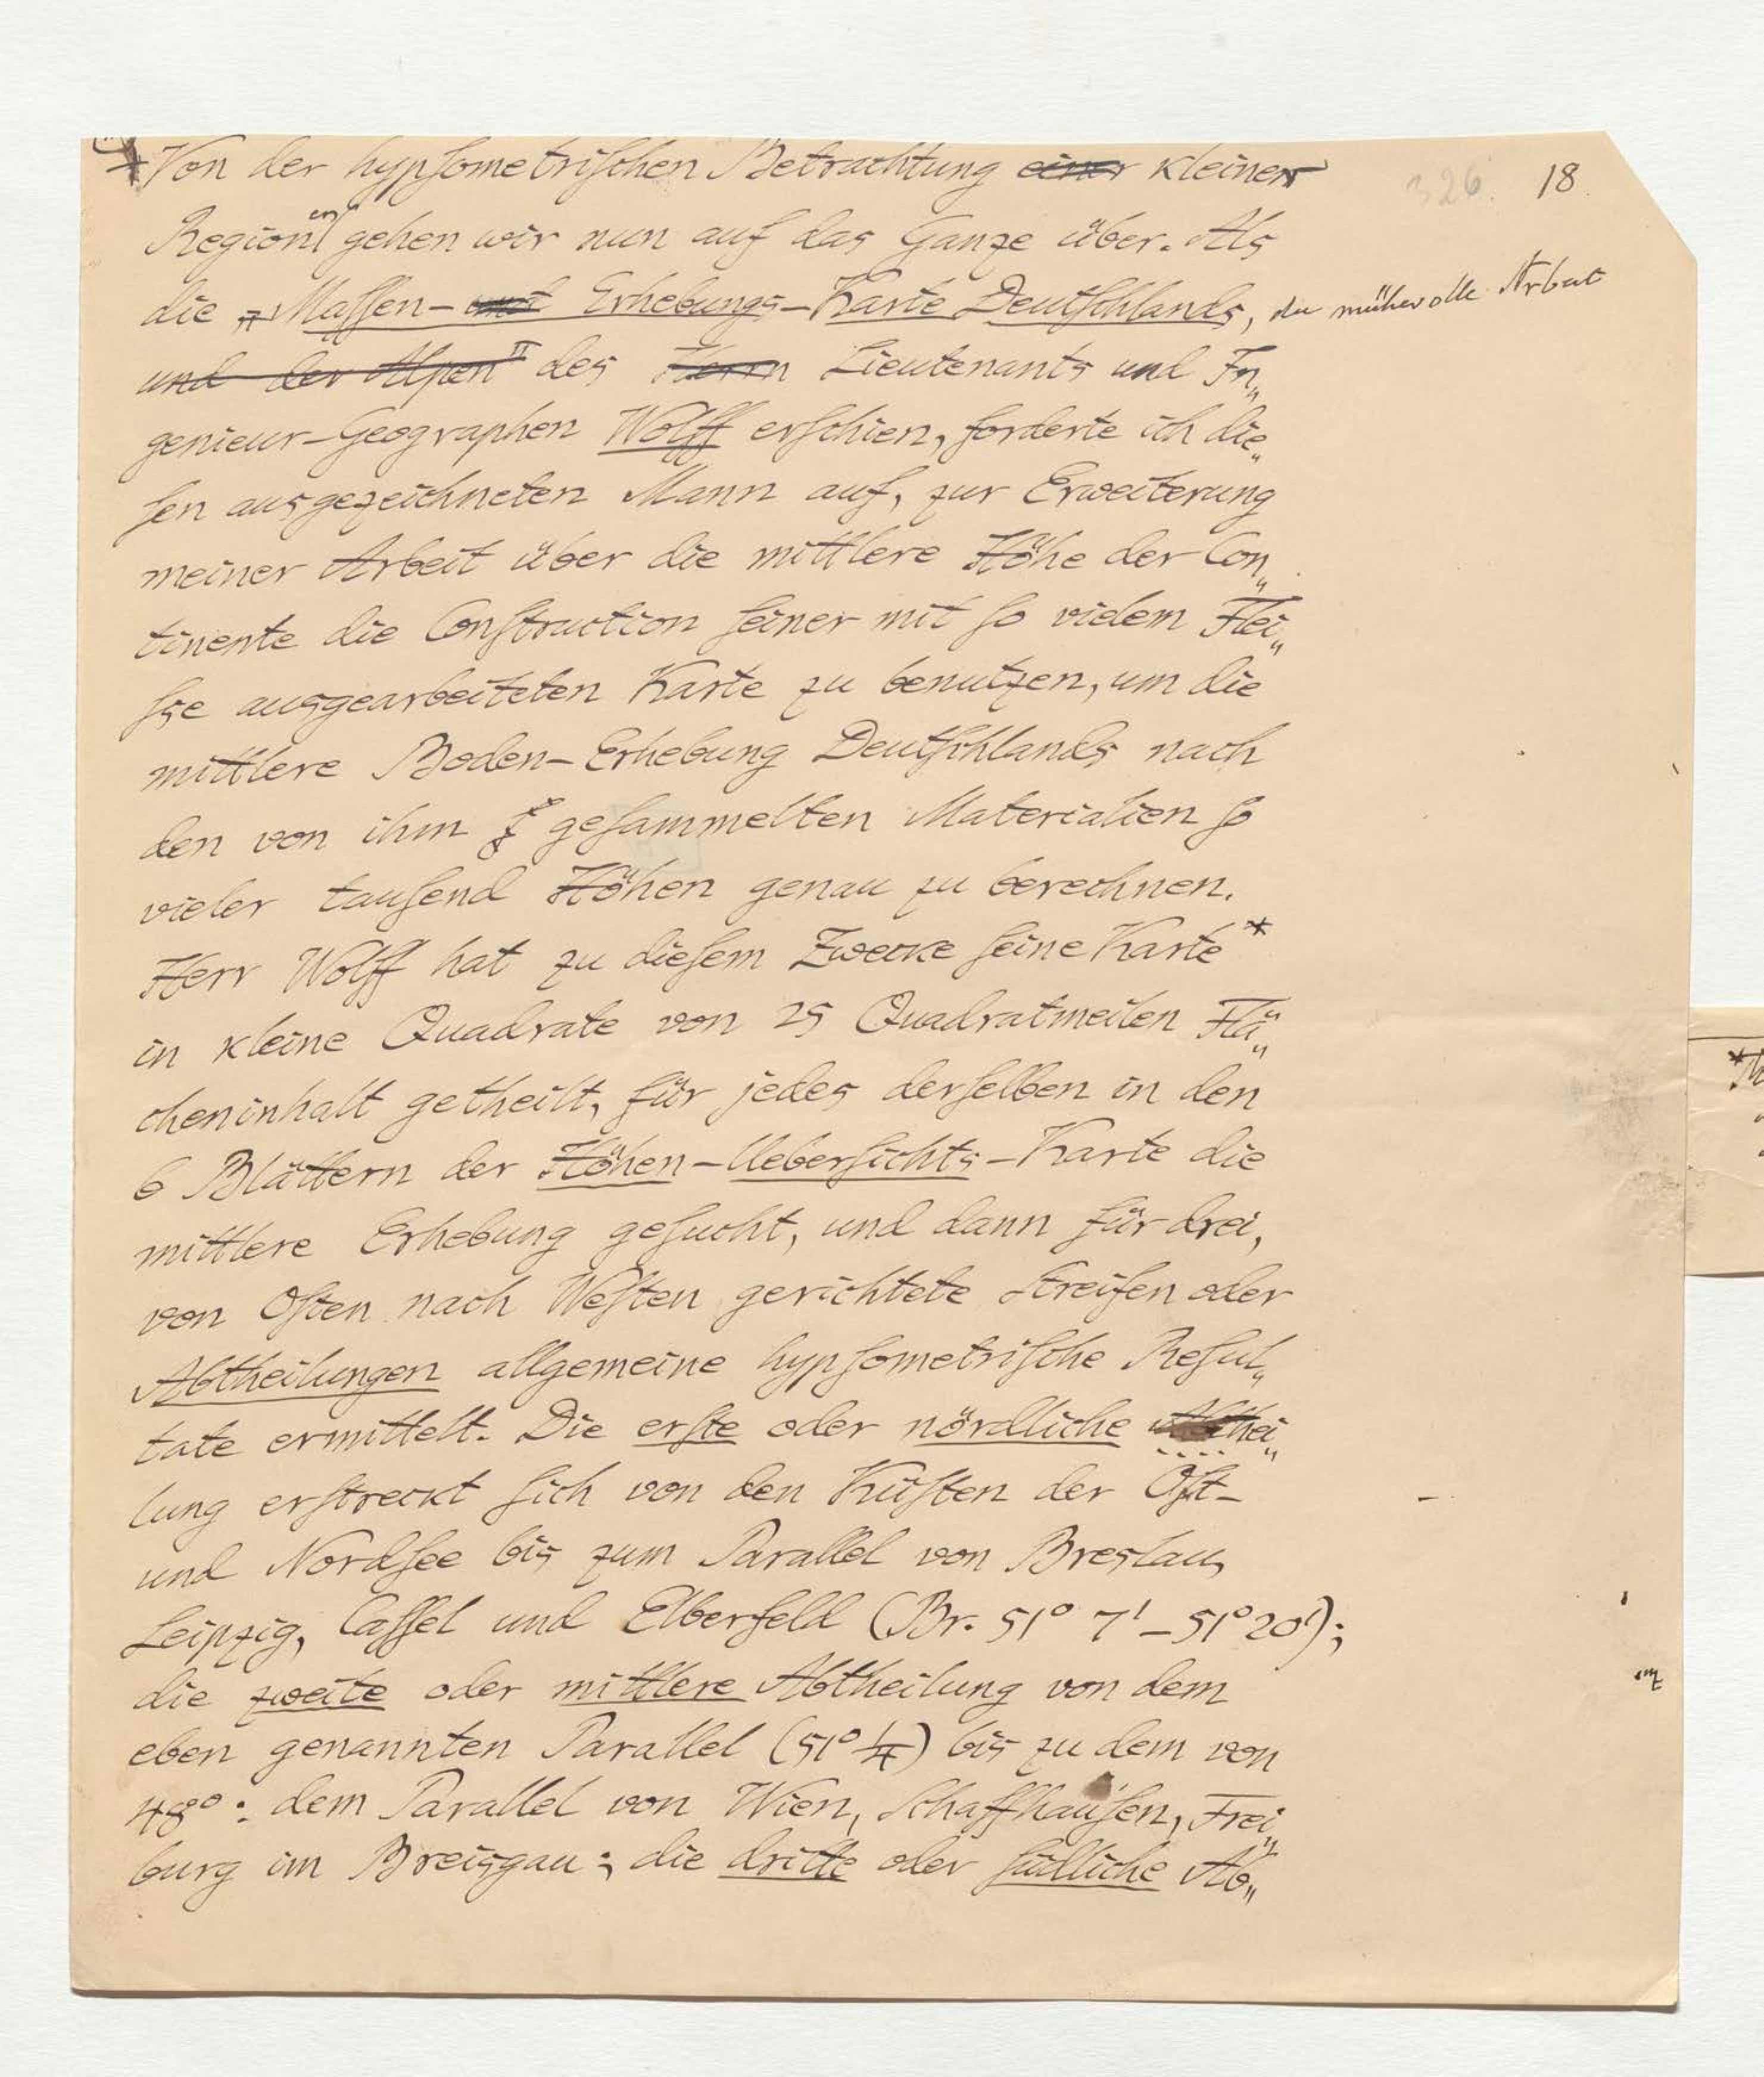 326. 18.
Von der hypsometrischen Betrachtung einer kleiner
Regionen gehen wir nun auf das Ganze über. Als
die „Massen- und Erhebungs-Karte Deutschlands, die mühevolle Arbeit
und der Alpen" des Herrn Lieutenants und In„
genieur-Geographen Wolff erschien, forderte ich die„
sen ausgezeichneten Mann auf, zur Erweiterung
meiner Arbeit über die mittlere Höhe der Con„
tinente die Construction seiner mit so vielem Flei„
sse ausgearbeiteten Karte zu benutzen, um die
mittlere Boden-Erhebung Deutschlands nach
den von ihm gesammelten Materialien so
vieler tausend Höhen genau zu berechnen.
Herr Wolff hat zu diesem Zwecke seine Karte*
in kleine Quadrate von 25 Quadratmeilen Flä„
cheninhalt getheilt, für jedes derselben in den
6 Blättern der Höhen-Uebersichts-Karte die
mittlere Erhebung gesucht, und dann für drei,
von Osten nach Westen gerichtete Streifen oder
Abtheilungen allgemeine hypsometrische Resul„
tate ermittelt. Die erste oder nördliche Abthei„
lung erstreckt sich von den Küsten der Ost-
und Nordsee bis zum Parallel von Breslau,
Leipzig, Cassel und Elberfeld (Br. 51° 7' – 51° 20');
die zweite oder mittlere Abtheilung von dem
eben genannten Parallel (51° 1/4) bis zu dem von
48°: dem Parallel von Wien, Schaffhausen, Frei„
burg im Breisgau; die dritte oder südliche Ab„